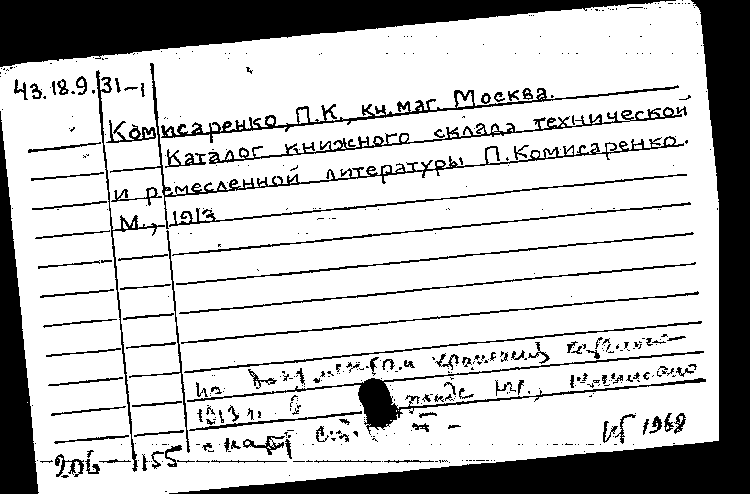 43.18.9.31-1
Комисаренко, П.К., кн.маг. Москва.
Каталог книжного склада технической
и ремесленной литературы П.Комисаренко.
М., 1913
по документам хранения
1913 г. в
206 - 1155
1968